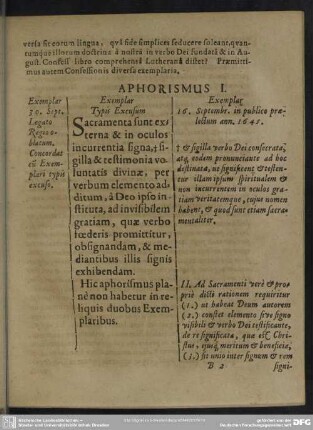 versa sit eorum lingua, quâ side simplices seducere soleant, quan-
tumque illorum doctrina à nostra in verbo Dei fundatâ & in Au-
gust. Confess. libro comprehensâ Lutheranâ distet? Præmitti-
mus autem Confessionis diversa exemplaria.
APHORISMUS I.
Exemplar
30. Sept.
Legato
Regio o-
blatum.
Concordat
cū Exem-
plari typis
excuso.
Exemplar
Typis Excusum
Sacramenta sunt ex-
terna & in oculos
incurrentia signa, † si-
gilla & testimonia vo-
luntatis divinæ, per
verbum elemento ad-
ditum, à Deo ipso in-
stituta, ad invisibilem
gratiam, quæ verbo
fœderis promittitur,
obsignandam, & me-
diantibus illis signis
exhibendam.
Hic aphorismus pla-
nè non habetur in re-
liquis duobus Exem-
plaribus.
Exemplar
16. Septembr. in publico præ-
lectum ann. 1645.
† & sigilla verbo Dei consecrata,
atq; eodem pronunciante ad hoc
destinata, ut significent & testen-
tur illam ipsam spiritualem &
non incurrentem in oculos gra-
tiam veritatemque, cujus nomen
habent, & quod sunt etiam sacra-
mentaliter.
II. Ad Sacramenti verè & pro-
priè dicti rationem requiritur
(1.) ut habeat Deum autorem
(2.) constet elemento sive signo
visibili & verbo Dei testificante,
de re significata, quæ est Chri-
stus, ejusq; meritum & beneficia,
(3.) sit unio inter signum & rem
B 2 signi-